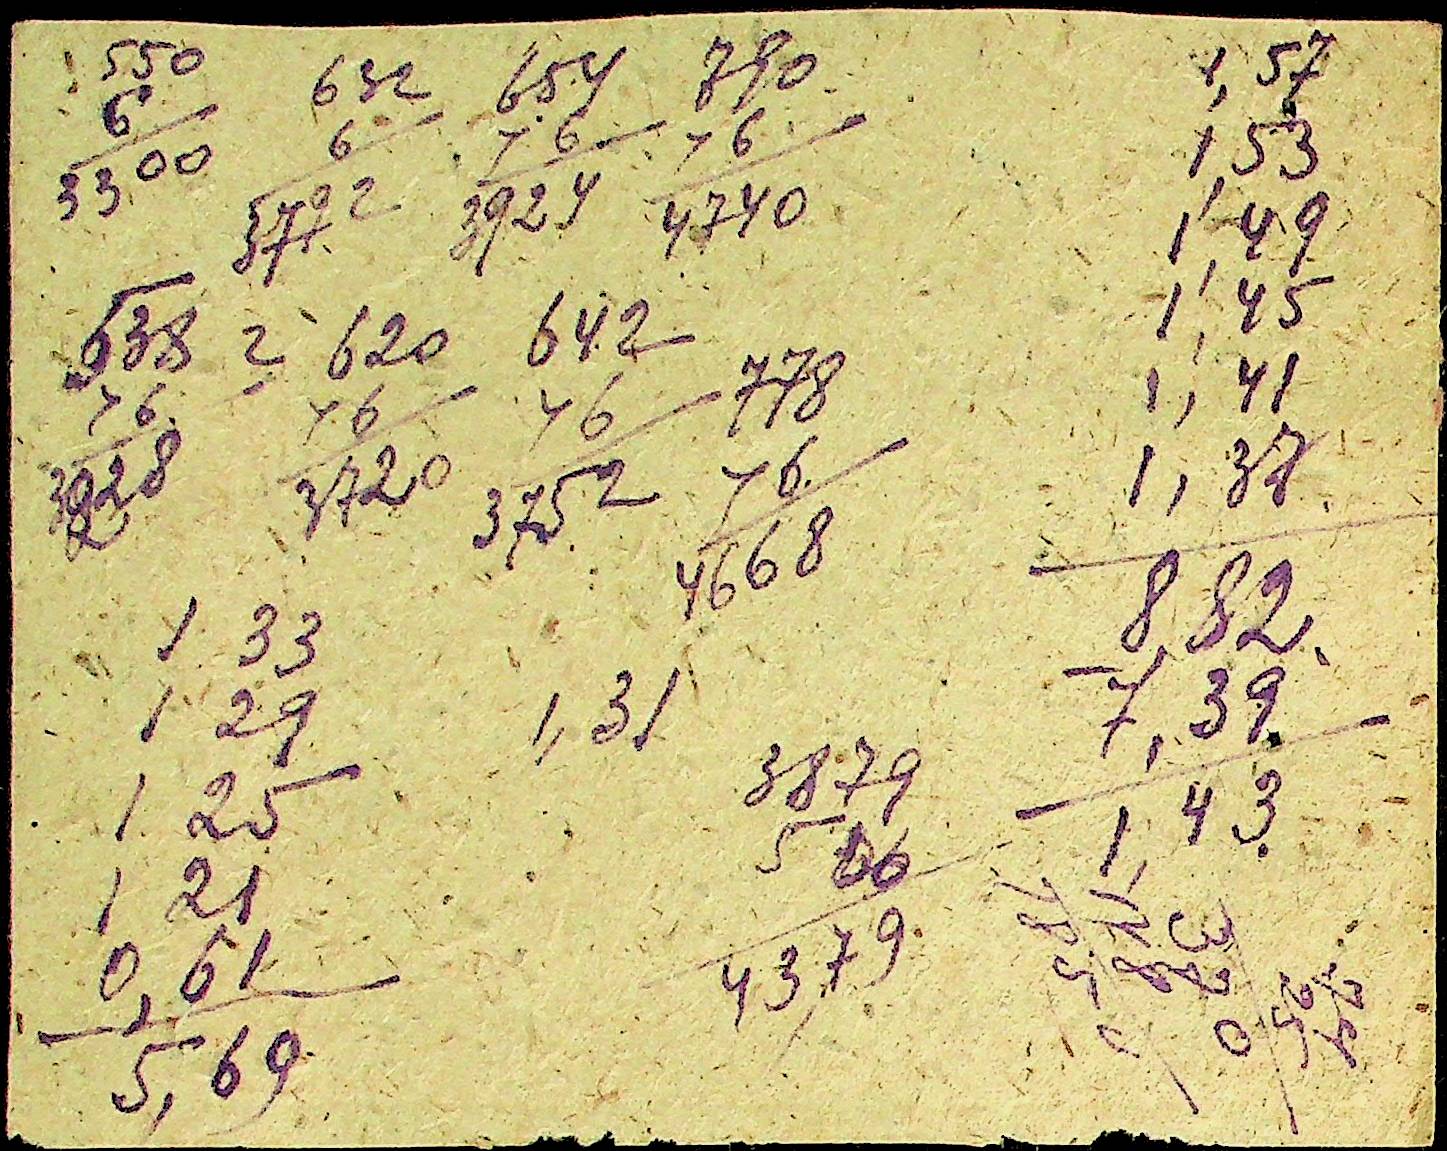 550
6
3300
632
6
3792
654
× 6
3924
790
× 6
4740
638
× 6
3828
2
620
× 6
3720
642
× 6
3752
778
× 6
4668
1 33
1 29
1 25
1 21
0,61
5,69
1,31
3879
500
4379
1,57
1,53
1,49
1,45
1,41
1,37
8,82
7,39
1,43